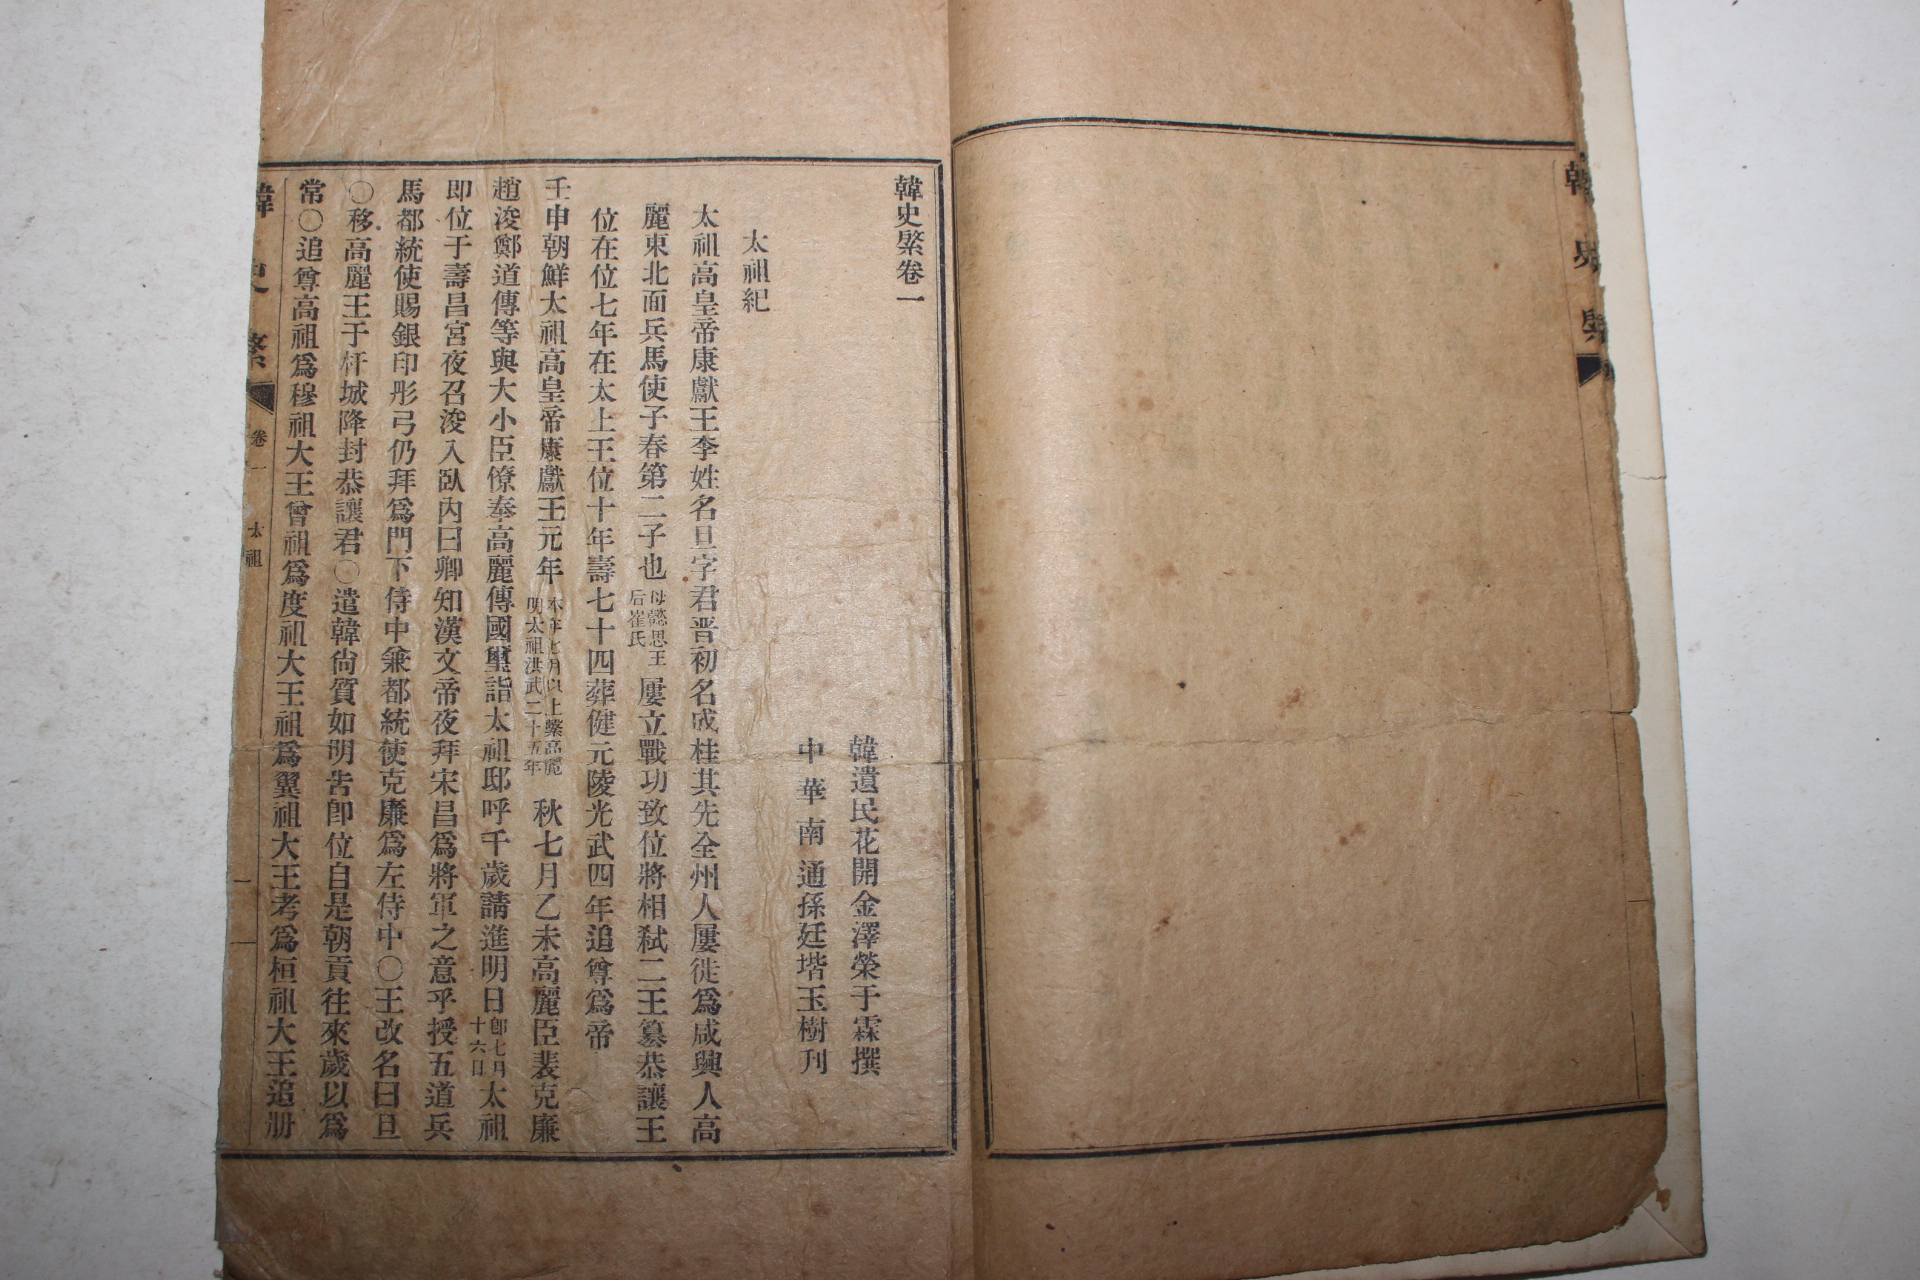 韓史綮
韓史綮卷一
韓遺民花開金澤榮于霖撰
中華南通孫廷堦玉樹刊
太祖紀
太祖高皇帝康獻王李姓名旦字君晋初名成桂其先全州人屢徙爲咸興人高
麗東北面兵馬使子春第二子也母懿思王后崔氏屢立戰功致位將相弑二王簒恭讓王
位在位七年在太上王位十年壽七十四葬健元陵光武四年追尊爲帝
壬申朝鮮太祖高皇帝康獻王元年本年七月以上繫高麗明太祖洪武二十五年秋七月乙未高麗臣裴克廉
趙浚鄭道傳等與大小臣僚奉高麗傳國璽詣太祖邸呼千歲請進明日卽七月十六日太祖
即位于壽昌宮夜召浚入臥內曰卿知漢文帝夜拜宋昌爲將軍之意乎授五道兵
馬都統使賜銀印彤弓仍拜爲門下侍中兼都統使克廉爲左侍中〇王改名曰旦
〇移高麗王于杆城降封恭讓君〇遣韓尙質如明告卽位自是朝貢往來歲以爲
常〇追尊高祖爲穆祖大王曾祖爲度祖大王祖爲翼祖大王考爲桓祖大王追册
韓史綮 卷一 太祖 一